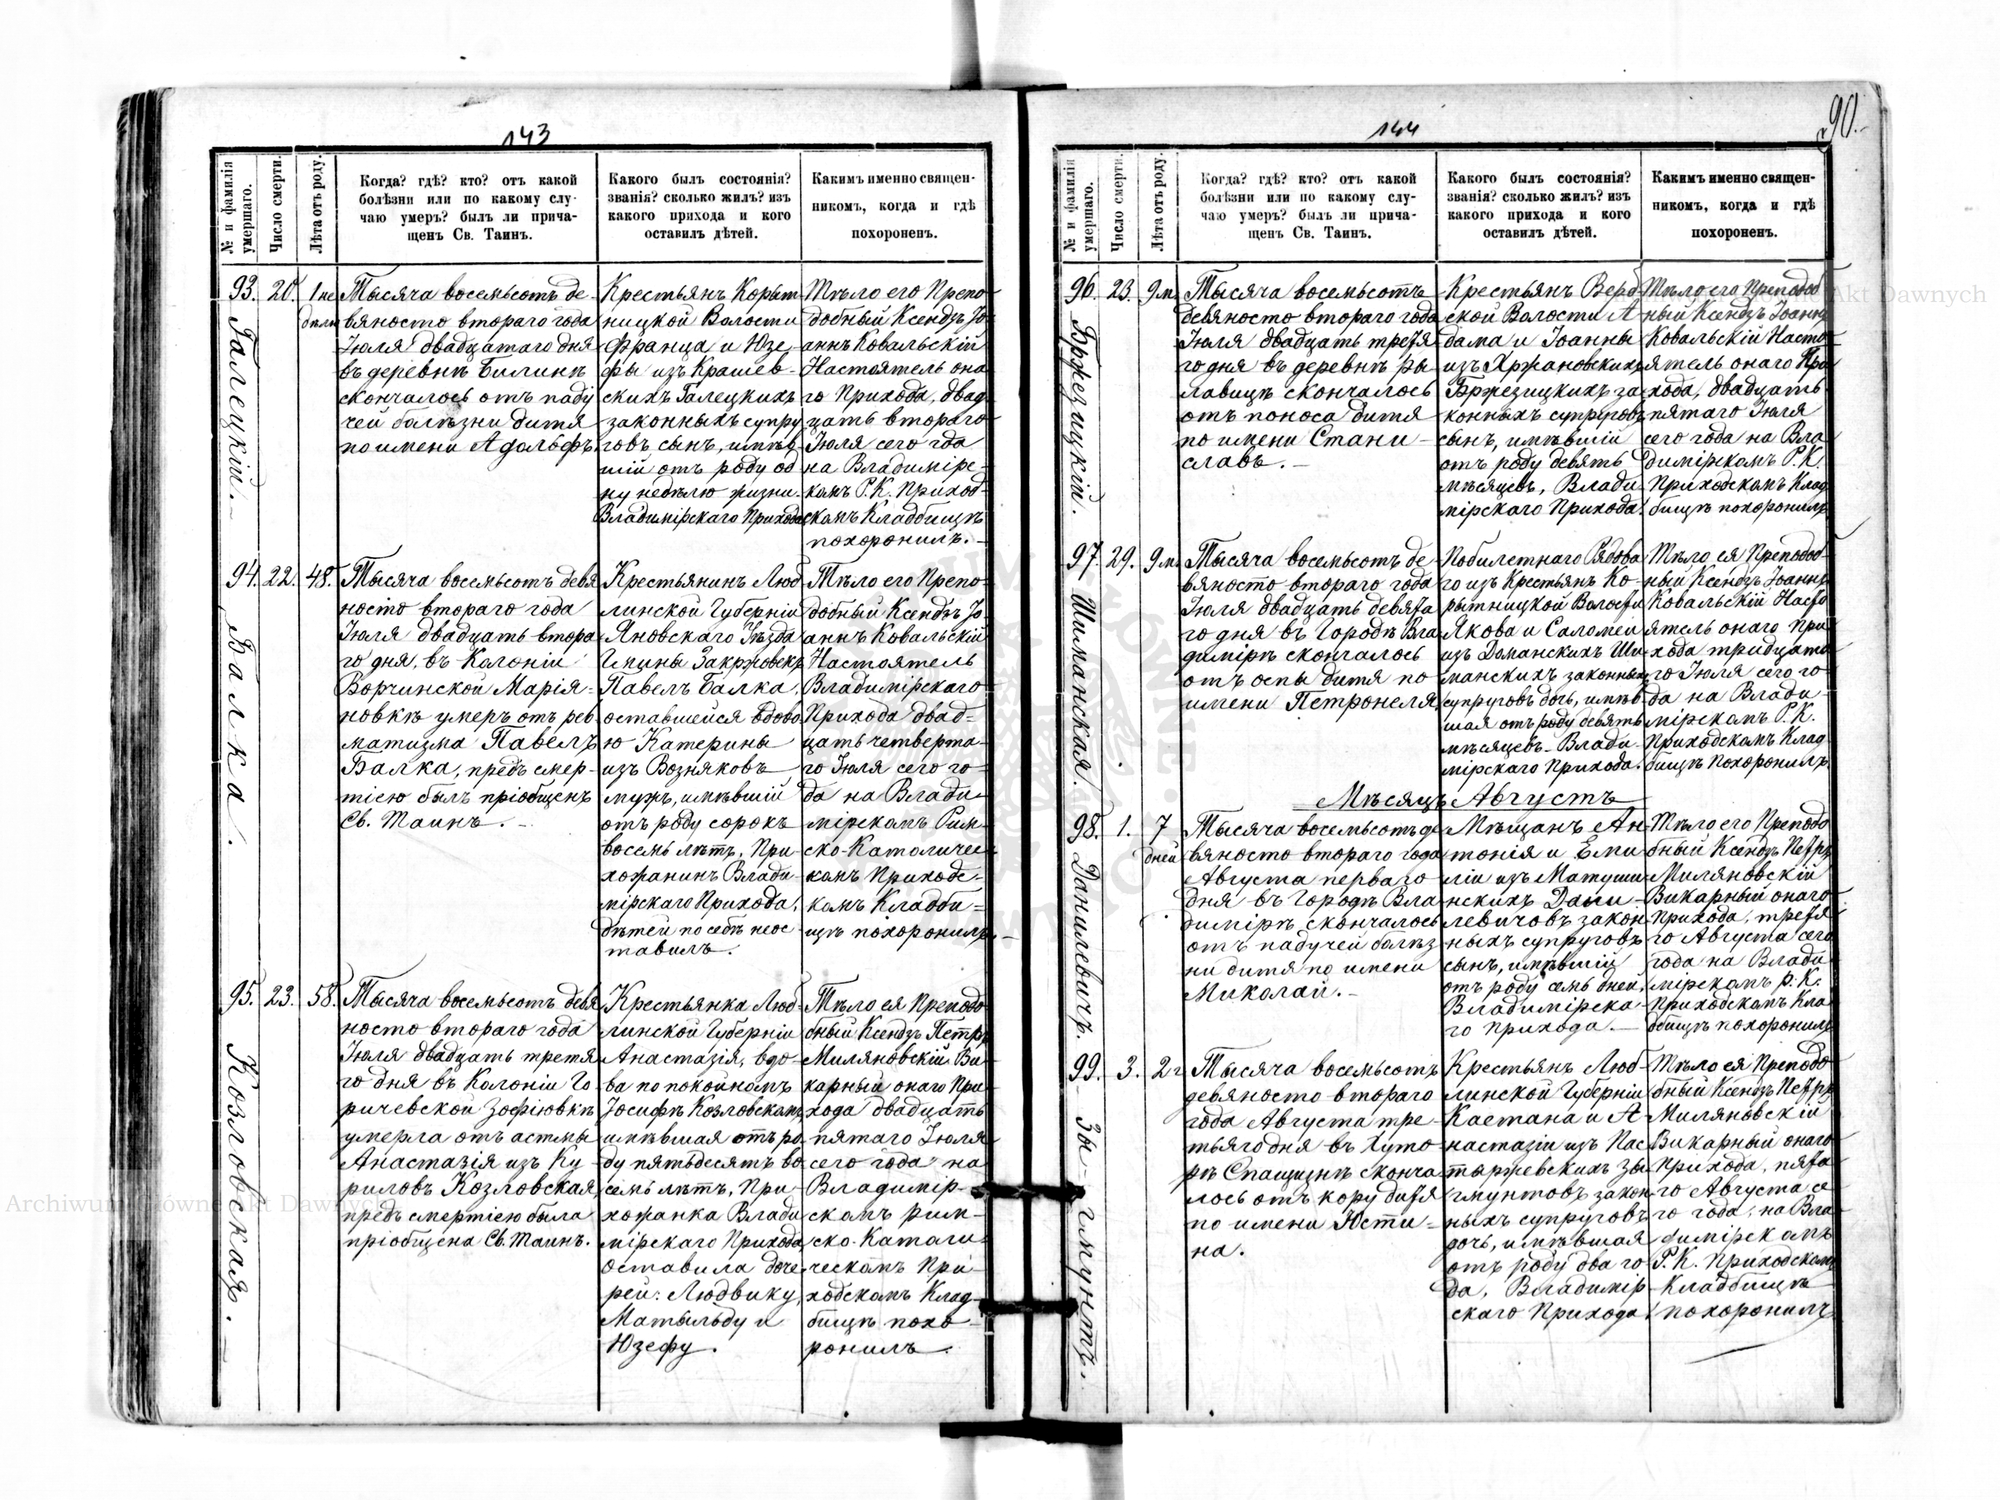 143
№ и фамилія умершаго.
Число смерти.
Лѣта отъ роду.
Когда? гдѣ? кто? отъ какой
болѣзни или по какому слу-
чаю умеръ? былъ ли прича-
щенъ Св. Таинъ.
Какого былъ состоянія?
званія? сколько жилъ? изъ
какого прихода и кого
оставилъ дѣтей.
Какимъ именно священ-
никомъ, когда и гдѣ
похороненъ.
93. Галецкій.
20.
1 не
дѣлю
Тысяча восемьсотъ де-
вяносто втораго года
Іюля двадцатаго дня
въ деревнѣ Билинѣ
скончалось отъ паду
чей балѣзни дитя
по имени Адольфъ.
Крестьянъ Корыт-
ницкой Волости
Франца и Юзе-
фы изъ Крашев-
скихъ Галецкихъ
законныхъ супру
говъ сынъ, имѣв-
шій отъ роду од
ну недѣлю жизни.
Владимірскаго Прихода.
Тѣло его Препо-
добный Ксендзъ Іо-
аннъ Ковальскій
Настоятель она
го Прихода, двад-
цать втораго
Іюля сего года
на Владимірс-
комъ Р. К. Приход-
скомъ Кладбищѣ
похоронилъ.
94. Балка.
22.
48.
Тысяча восемьсотъ девя
носто втораго года
Іюля двадцать втора
го дня, въ Колоніи
Ворчинской Марія-
новкѣ умеръ отъ рев
матизма Павелъ
Балка, предъ смер-
тію былъ пріобщенъ
Св. Таинъ.
Крестьянинъ Люб
линской Губерніи
Яновскаго Уѣзда
Гмины Закржовекъ
Павелъ Балка,
оставшейся вдово
ю Катерины
изъ Возняковъ
мужъ, имѣвшій
отъ роду сорокъ
восемь лѣтъ. При-
хожанинъ Влади-
мірскаго Прихода,
дѣтей по себѣ неос-
тавилъ.
Тѣло его Препо-
добный Ксендзъ Іо-
аннъ Ковальскій
Настоятель
Владимірскаго
Прихода двад-
цать четверта-
го Іюля сего го-
да на Влади-
мірскомъ Рим-
ско-Католичес-
комъ Приходс-
комъ Кладби-
щѣ похоронилъ.
95. Козловская.
23.
58.
Тысяча восемьсотъ девя
носто втораго года
Іюля двадцать третя
го дня въ Колоніи Го
ричевской Зофіювкѣ
умерла отъ астмы
Анастазія изъ Ку
риловъ Козловская
предъ смертію была
пріобщена Св. Таинъ.
Крестьянка Люб-
линской Губерніи
Анастазія, вдо-
ва по покойномъ
Іосифѣ Козловскомъ,
имѣвшая отъ ро
ду пятьдесятъ во
семь лѣтъ. При-
хожанка Влади
мірскаго Прихода
оставила доче
рей: Людвику,
Матыльду и
Юзефу.
Тѣло ея Преподо-
бный Ксендзъ Петръ
Миляновскій Ви-
карный онаго При
хода двадцать
пятаго Іюля
сего года на
Владимір-
скомъ Рим-
ско-Катали-
ческомъ При
ходскомъ Клад
бищѣ похо-
ронилъ.
144
90.
№ и фамилія умершаго.
Число смерти.
Лѣта отъ роду.
Когда? гдѣ? кто? отъ какой
болѣзни или по какому слу-
чаю умеръ? былъ ли прича-
щенъ Св. Таинъ.
Какого былъ состоянія?
званія? сколько жилъ? изъ
какого прихода и кого
оставилъ дѣтей.
Какимъ именно священ-
никомъ, когда и гдѣ
похороненъ.
96. Бржезицкій.
23.
9 м.
Тысяча восемьсотъ
девяносто втораго года
Іюля двадцать третя
го дня въ деревнѣ Ры
лавицѣ скончалось
отъ поноса дитя
по имени Стани-
славъ.
Крестьянъ Верб-
ской Волости А-
дама и Іоанны
изъ Хржановскихъ
Бржезицкихъ за
конныхъ супруговъ
сынъ, имѣвшій
отъ роду девять
мѣсяцевъ, Влади-
мірскаго Прихода.
Тѣло его Преподоб
ный Ксендзъ Іоаннъ
Ковальскій Насто-
ятель онаго При
хода, двадцать
пятаго Іюля
сего года на Вла
димірскомъ Р. К.
Приходскомъ Клад
бищѣ похоронилъ.
97. Шиманская.
29.
9 м.
Тысяча восемьсотъ де
вяносто втораго года
Іюля двадцать девята
го дня въ Городѣ Вла
димірѣ скончалось
отъ оспы дитя по
имени Петронеля.
Побилетнаго Рядова
го изъ Крестьян Ко-
рытницкой Волости
Якова и Саломеи
изъ Доманскихъ Ши-
манскихъ законныхъ
супруговъ дочь, имѣв
шая отъ роду девять
мѣсяцевъ. Влади-
мірскаго Прихода.
Тѣло ея Преподоб
ный Ксендзъ Іоаннъ
Ковальскій Насто
ятель онаго При
хода тридцата
го Іюля сего го
да на Влади-
мірскомъ Р. К.
Приходскомъ Клад
бищѣ Похоронилъ.
Мѣсяцъ Августъ
98. Данилевичъ.
1.
7
дней
Тысяча восемьсотъ де
вяносто втораго года
Августа перваго
дня въ Городѣ Вла
димірѣ скончалось
отъ падучей болѣз
ни дитя по имени
Миколай.
Мѣщанъ Ан
тонія и Еми
ліи изъ Матуши
нскихъ Дани-
левичовъ закон
ныхъ супруговъ
сынъ, имѣвшій
отъ роду семь дней,
Владимірска-
го прихода.
Тѣло его Преподо
бный Ксендзъ Петръ
Миляновскій
Викарный онаго
Прихода, третя
го Августа сего
года на Влади
мірскомъ Р. К.
Приходскомъ Кла
дбищѣ похоронилъ
99. Зыгмунтъ.
3.
2 г
Тысяча восемьсотъ
девяносто втораго
года Августа тре-
тьяго дня въ Хуто
рѣ Спащизнѣ сконча
лось отъ кору дитя
по имени Юсти-
на.
Крестьянъ Люб-
линской Губерніи
Каетана и А
настазіи изъ Пас
тержевскихъ Зы
гмунтовъ закон
ныхъ супруговъ
дочь, имѣвшая
отъ роду два го
да, Владимір-
скаго Прихода.
Тѣло ея Преподо
бный Ксендзъ Петръ
Миляновскій
Викарный онаго
Прихода, пята
го Августа се
го года, на Вла
димірскомъ
Р. К. Приходскомъ
Кладбищѣ
похоронилъ
Archiwum Główne Akt Dawnych
Archiwum Główne Akt Dawnych